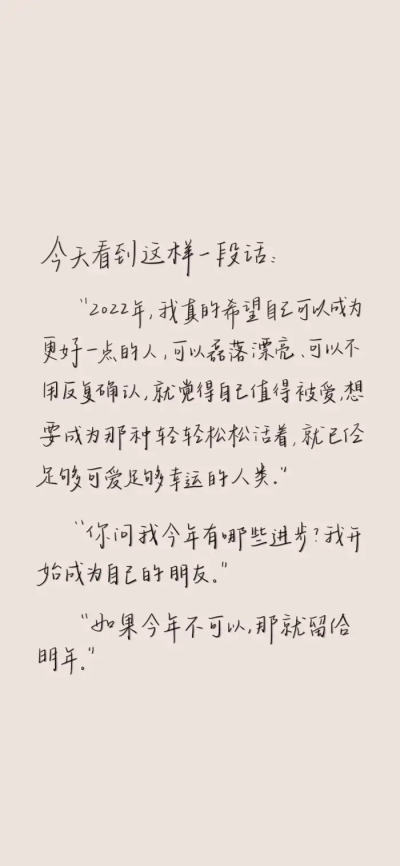 今天看到这样一段话:
"2022年,我真的希望自己可以成为
更好一点的人,可以磊落漂亮、可以不
用反复确认,就觉得自己值得被爱,想
要成为那种轻轻松松活着,就已经
足够可爱足够幸运的人类."
"你问我今年有哪些进步?我开
始成为自己的朋友."
"如果今年不可以,那就留给
明年."